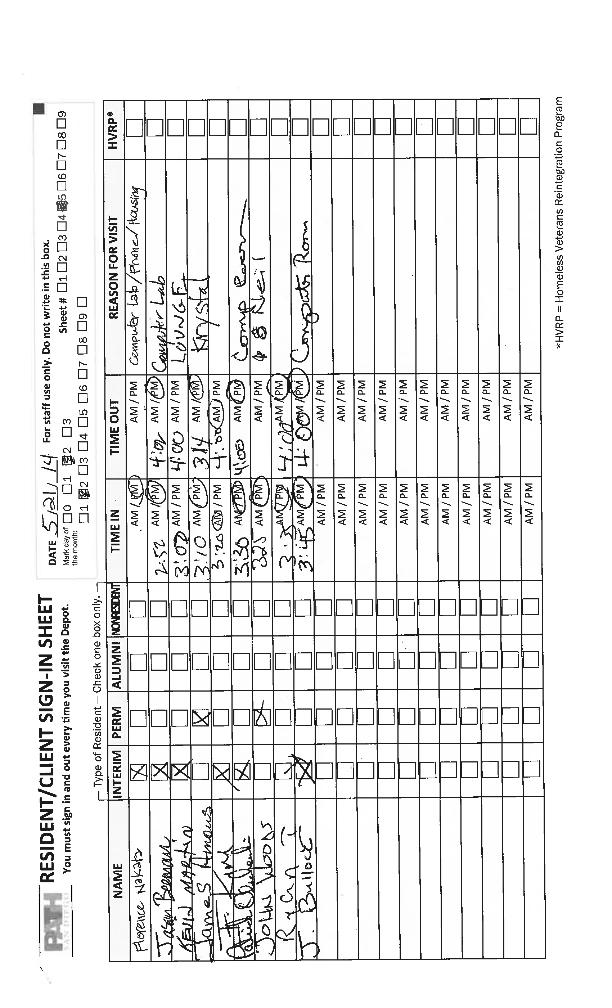 PATH
RESIDENT/CLIENT SIGN-IN SHEET
You must sign in and out every time you visit the Depot.
DATE 5/21/14 For staff use only. Do not write in this box.
Mark day of the month: 0 1 2 3 Sheet # 1 2 3 4 5 6 7 8 9
1 2 3 4 5 6 7 8 9
Type of Resident – Check one box only.
NAME INTERIM PERM ALUMNI NONRESIDENT TIME IN TIME OUT REASON FOR VISIT HVRP*
Florence AM / PM AM / PM Computer Lab / Phone / Housing
Jason 2:52 AM / PM 4:00 AM / PM Computer Lab
KEVIN MARTIN 3:00 AM / PM 4:00 AM / PM LOUNGE
James 3:10 AM / PM 3:14 AM / PM Krystal
3:20 AM / PM 4:00 AM / PM
3:30 AM / PM 4:00 AM / PM Comp Room
JOHN WOODS 325 AM / PM AM / PM Neil
Ryan T AM / PM 4:00 AM / PM
J. Bullock 3:45 AM / PM 4:00 AM / PM Computer Room
AM / PM AM / PM
AM / PM AM / PM
AM / PM AM / PM
AM / PM AM / PM
AM / PM AM / PM
AM / PM AM / PM
AM / PM AM / PM
AM / PM AM / PM
AM / PM AM / PM
*HVRP = Homeless Veterans Reintegration Program